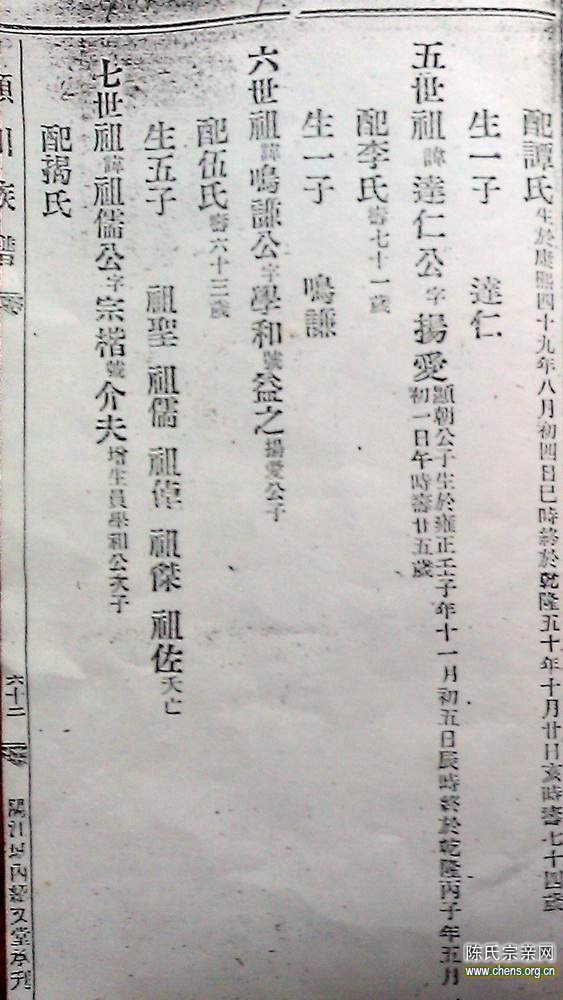 配譚氏生於康熙四十九年八月初四日巳時終於乾隆五十年十月廿日亥時壽七十四歲
生一子 達仁
五世祖諱達仁公字揚愛顯朝公子生於雍正壬子年十一月初五日辰時終於乾隆丙子年五月初一日午時壽廿五歲
配李氏壽七十一歲
生一子 鳴謙
六世祖諱鳴謙公字學和號益之揚愛公子
配伍氏壽六十三歲
生五子 祖聖 祖儒 祖倬 祖傑 祖佐夭亡
七世祖諱祖儒公字宗楷號介夫增生員學和公次子
配揭氏
川族譜
六十二
內經文堂承刊
陈氏宗亲网
www.chens.org.cn